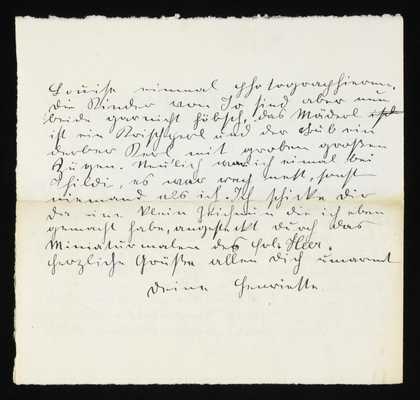 Louise einmal photographieren.
Die Kinder von Jo sind aber nun
beide garnicht hübsch, das Mäderl ist
ist ein Krischperl und der Bub ein
derber Kerl mit groben großen
Zügen. Neulich war ich einmal bei
Thildi, es war recht nett, sonst
niemand als ich. Ich schicke dir
da eine klein Zeichnun die ich eben
gemacht habe, angesteckt durch das
Miniaturmalen des Frl. Heer.
herzliche Grüße allen dich umarmt
deine Henriette.